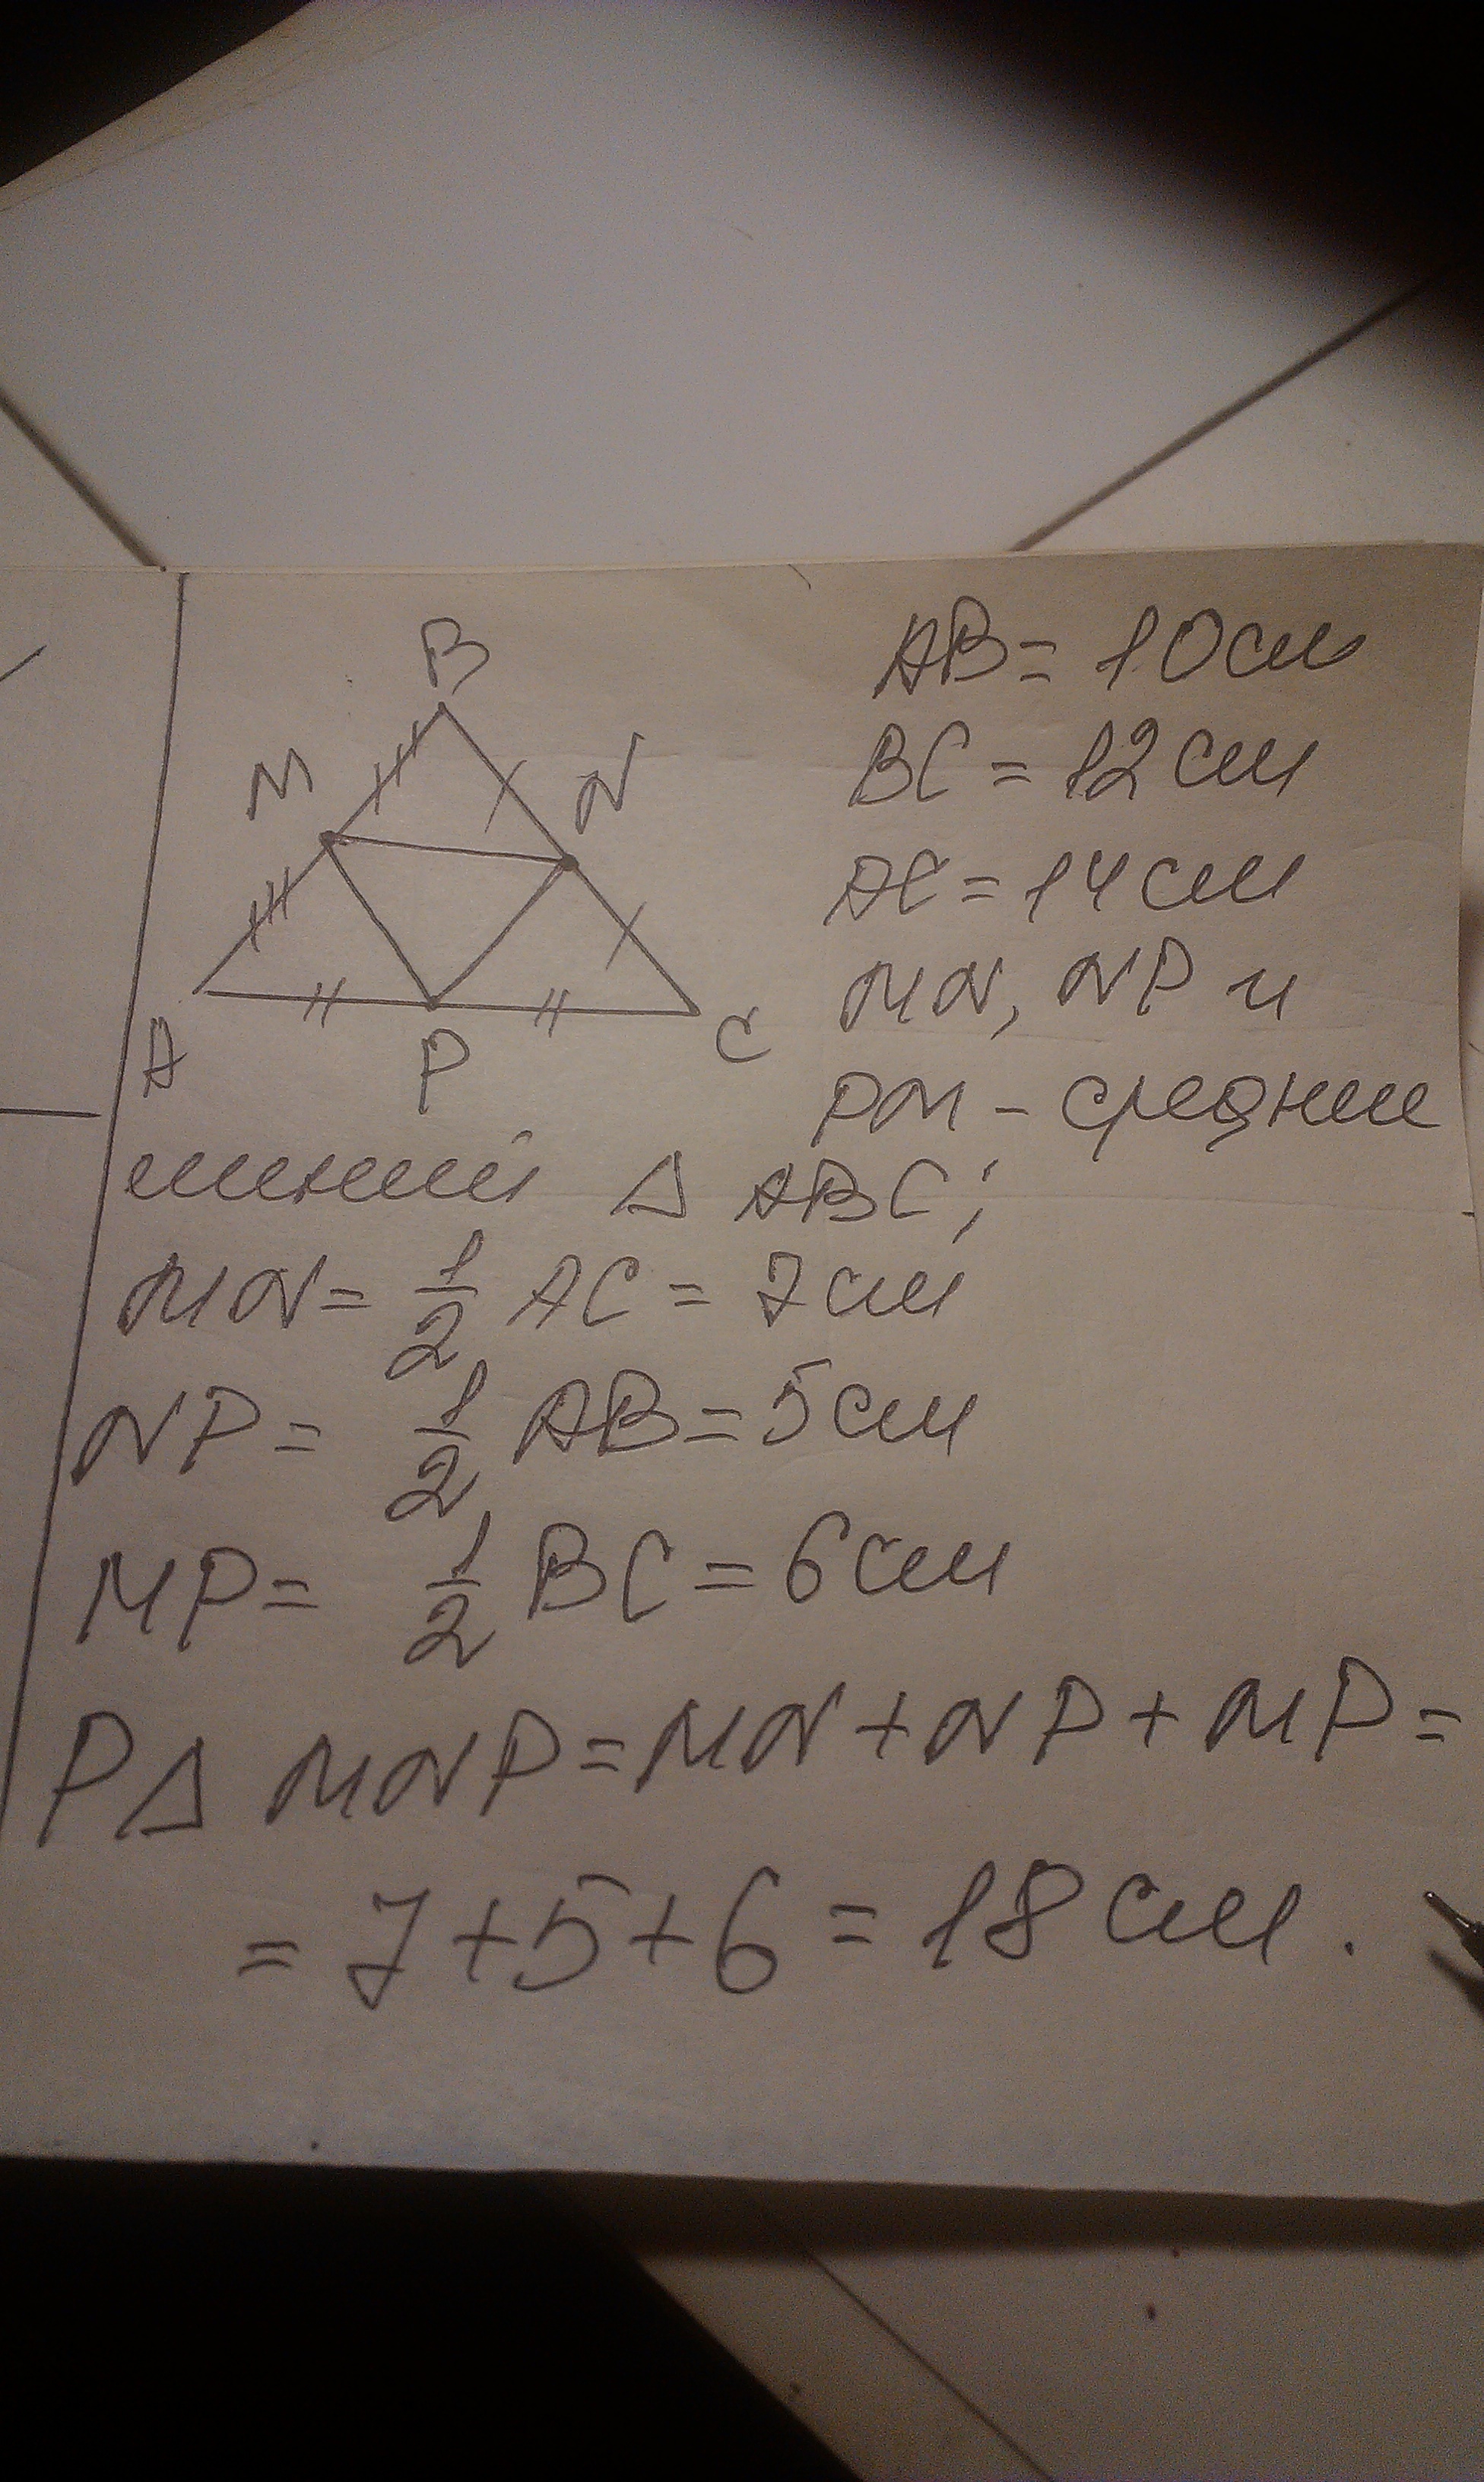 B
M
N
A
P
C
AB = 10 см
BC = 12 см
AC = 14 см
MN, NP и
PM - средние
линий Δ ABC;
MN = 1/2 AC = 7 см
NP = 1/2 AB = 5 см
MP = 1/2 BC = 6 см
PΔ MNP = MN + NP + MP =
= 7 + 5 + 6 = 18 см.